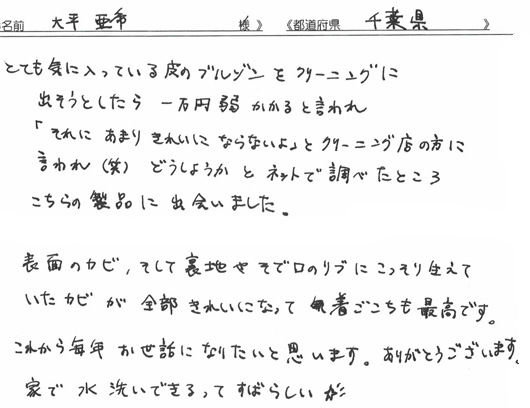 名前 大平 亜希 様》 《都道府県 千葉県 》
とても気に入っている皮のブルゾンをクリーニングに
出そうとしたら 一万円弱かかると言われ
「それに あまりきれいに ならないよ」とクリーニング店の方に
言われ(笑) どうしようかと ネットで調べたところ
こちらの製品に出会いました。
表面のカビ,そして裏地やそで口のリブにこっそり生えて
いたカビが 全部きれいになって 着ごこちも最高です。
これから毎年 お世話になりたいと思います。ありがとうございます。
家で水洗いできるって すばらしい